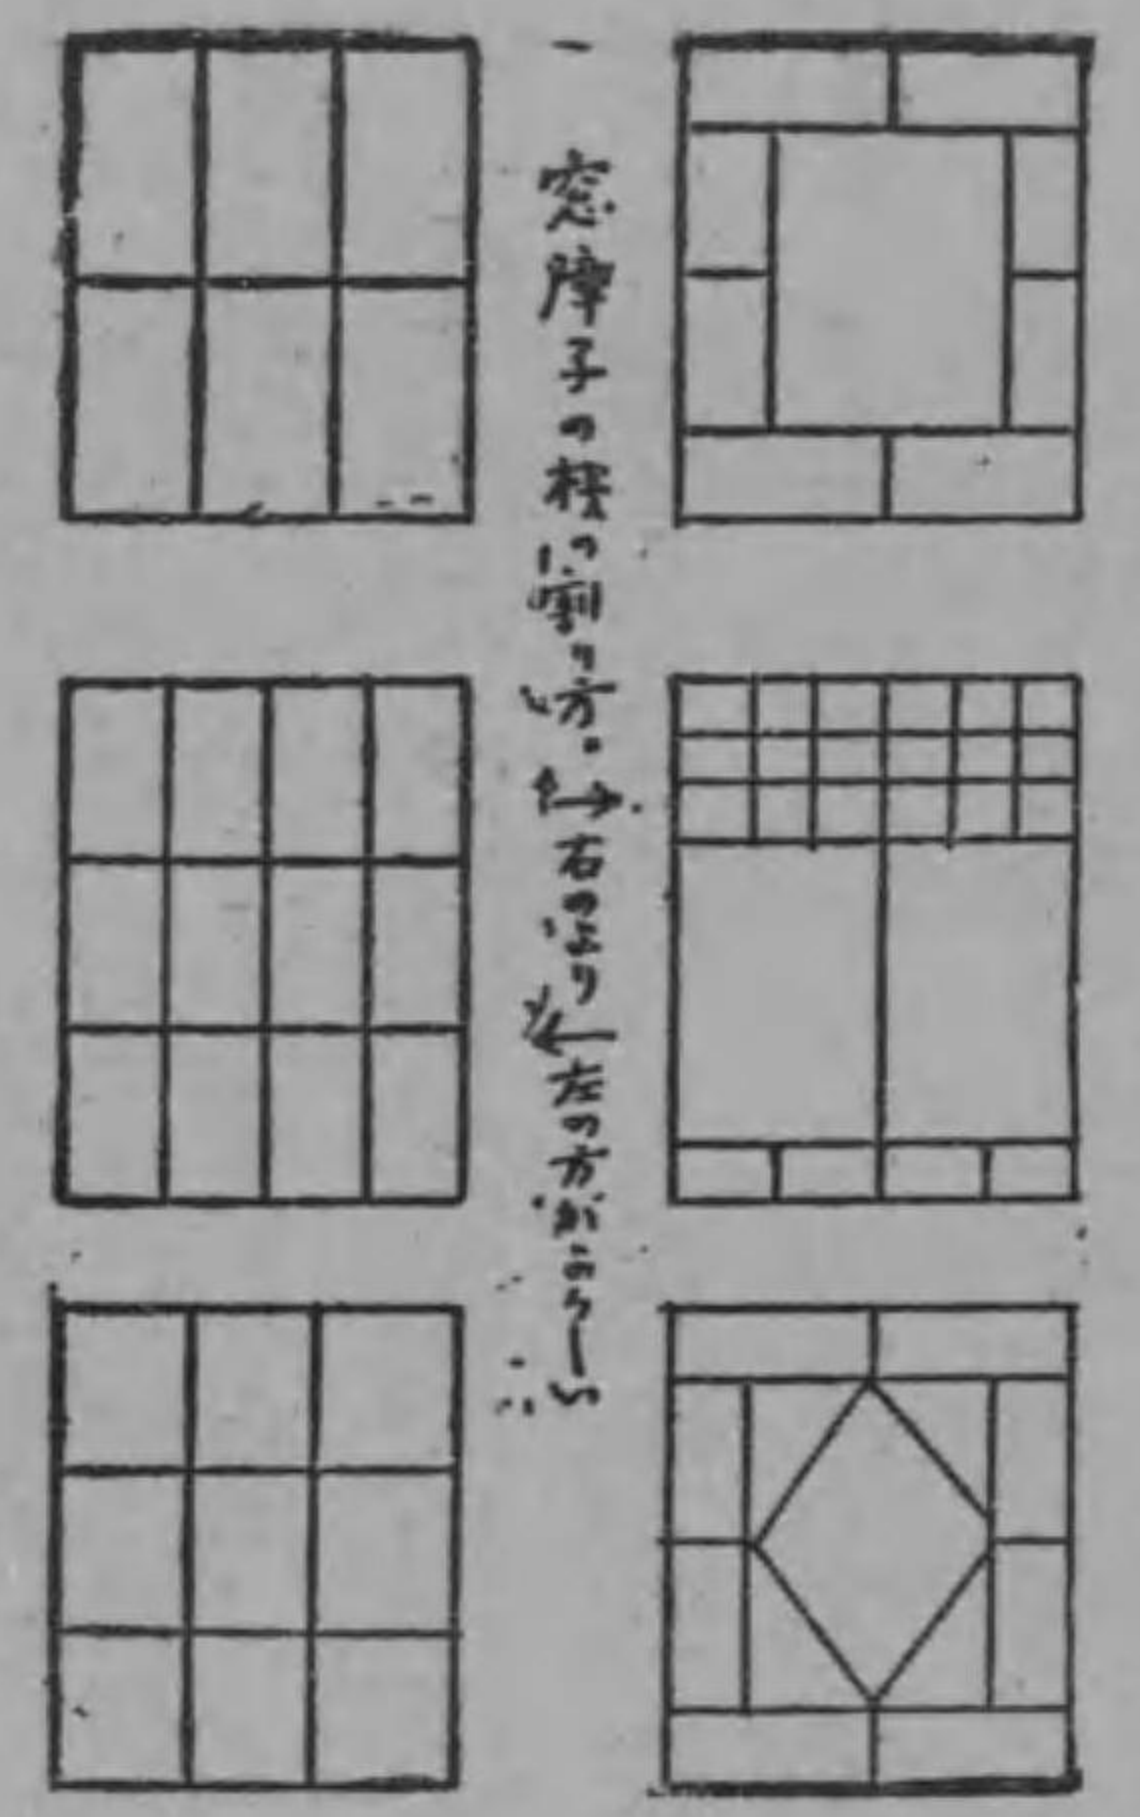 一 窓障子の桟の割り方。→右のより←左の方がよろしい